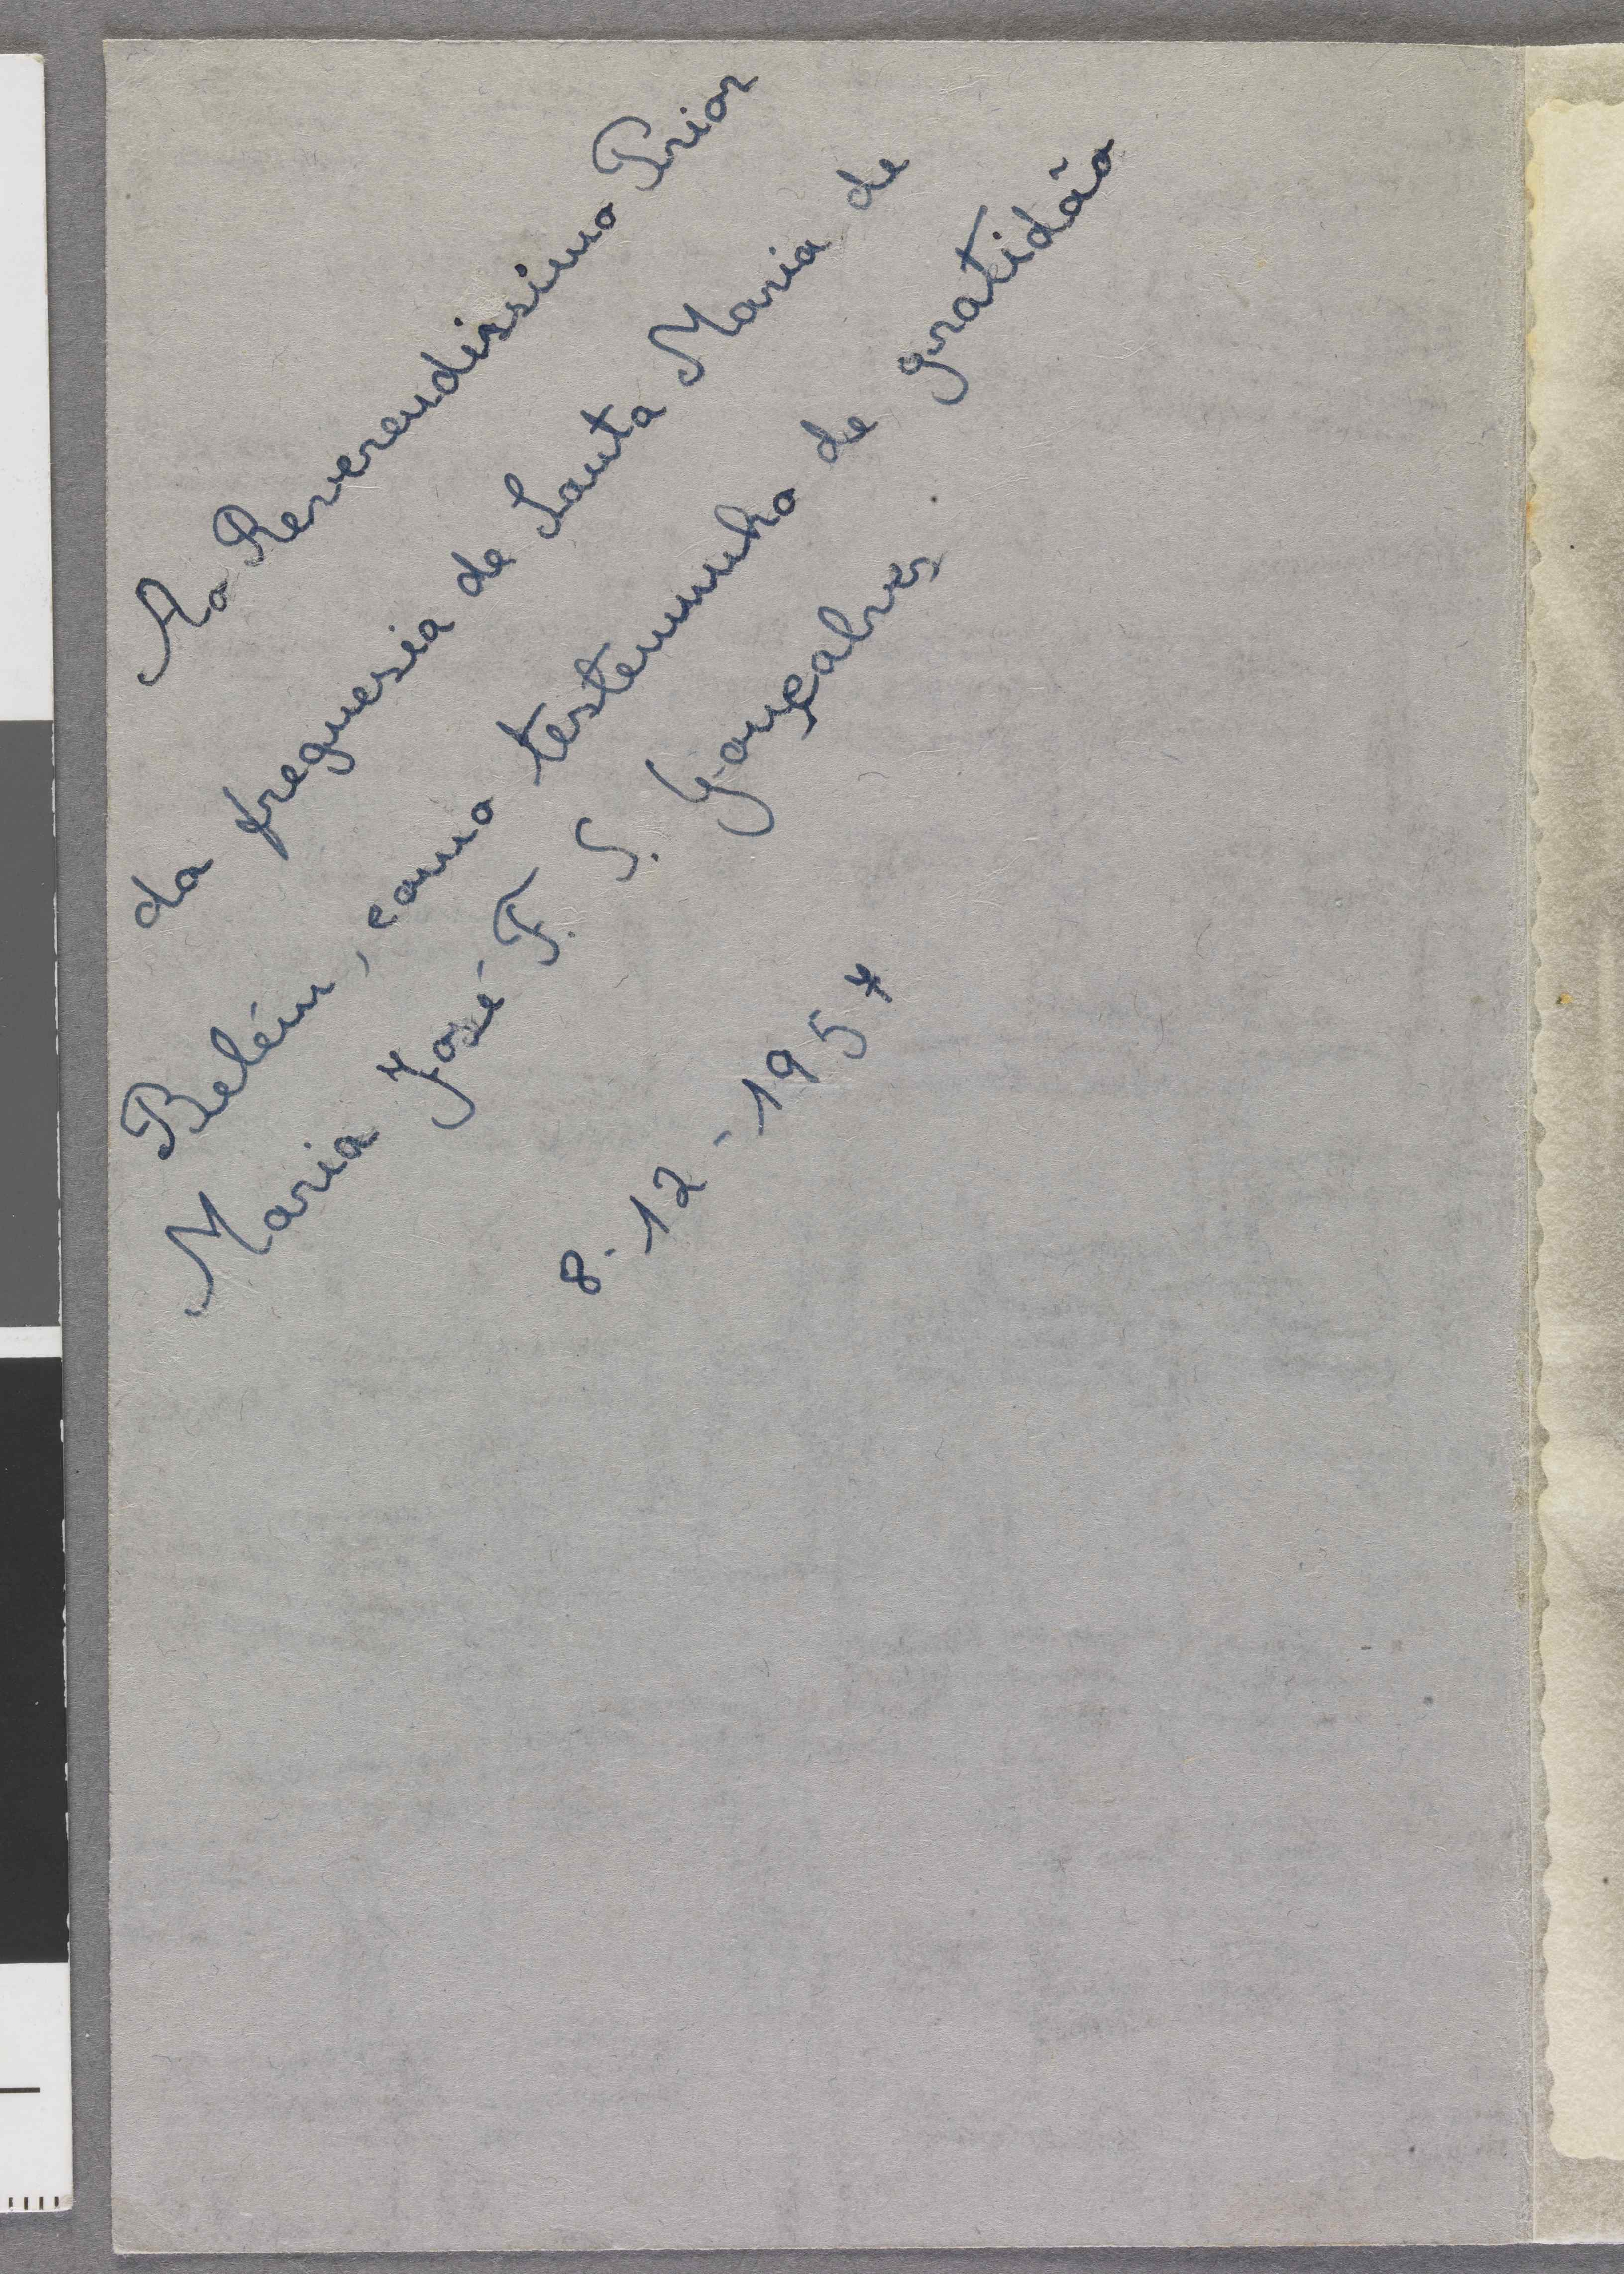 Ao Reverendissimo Prior
da freguesia de Santa Maria de
Belém, como testemunho de gratidão
Maria José T. S. Gonçalves
8-12-1957